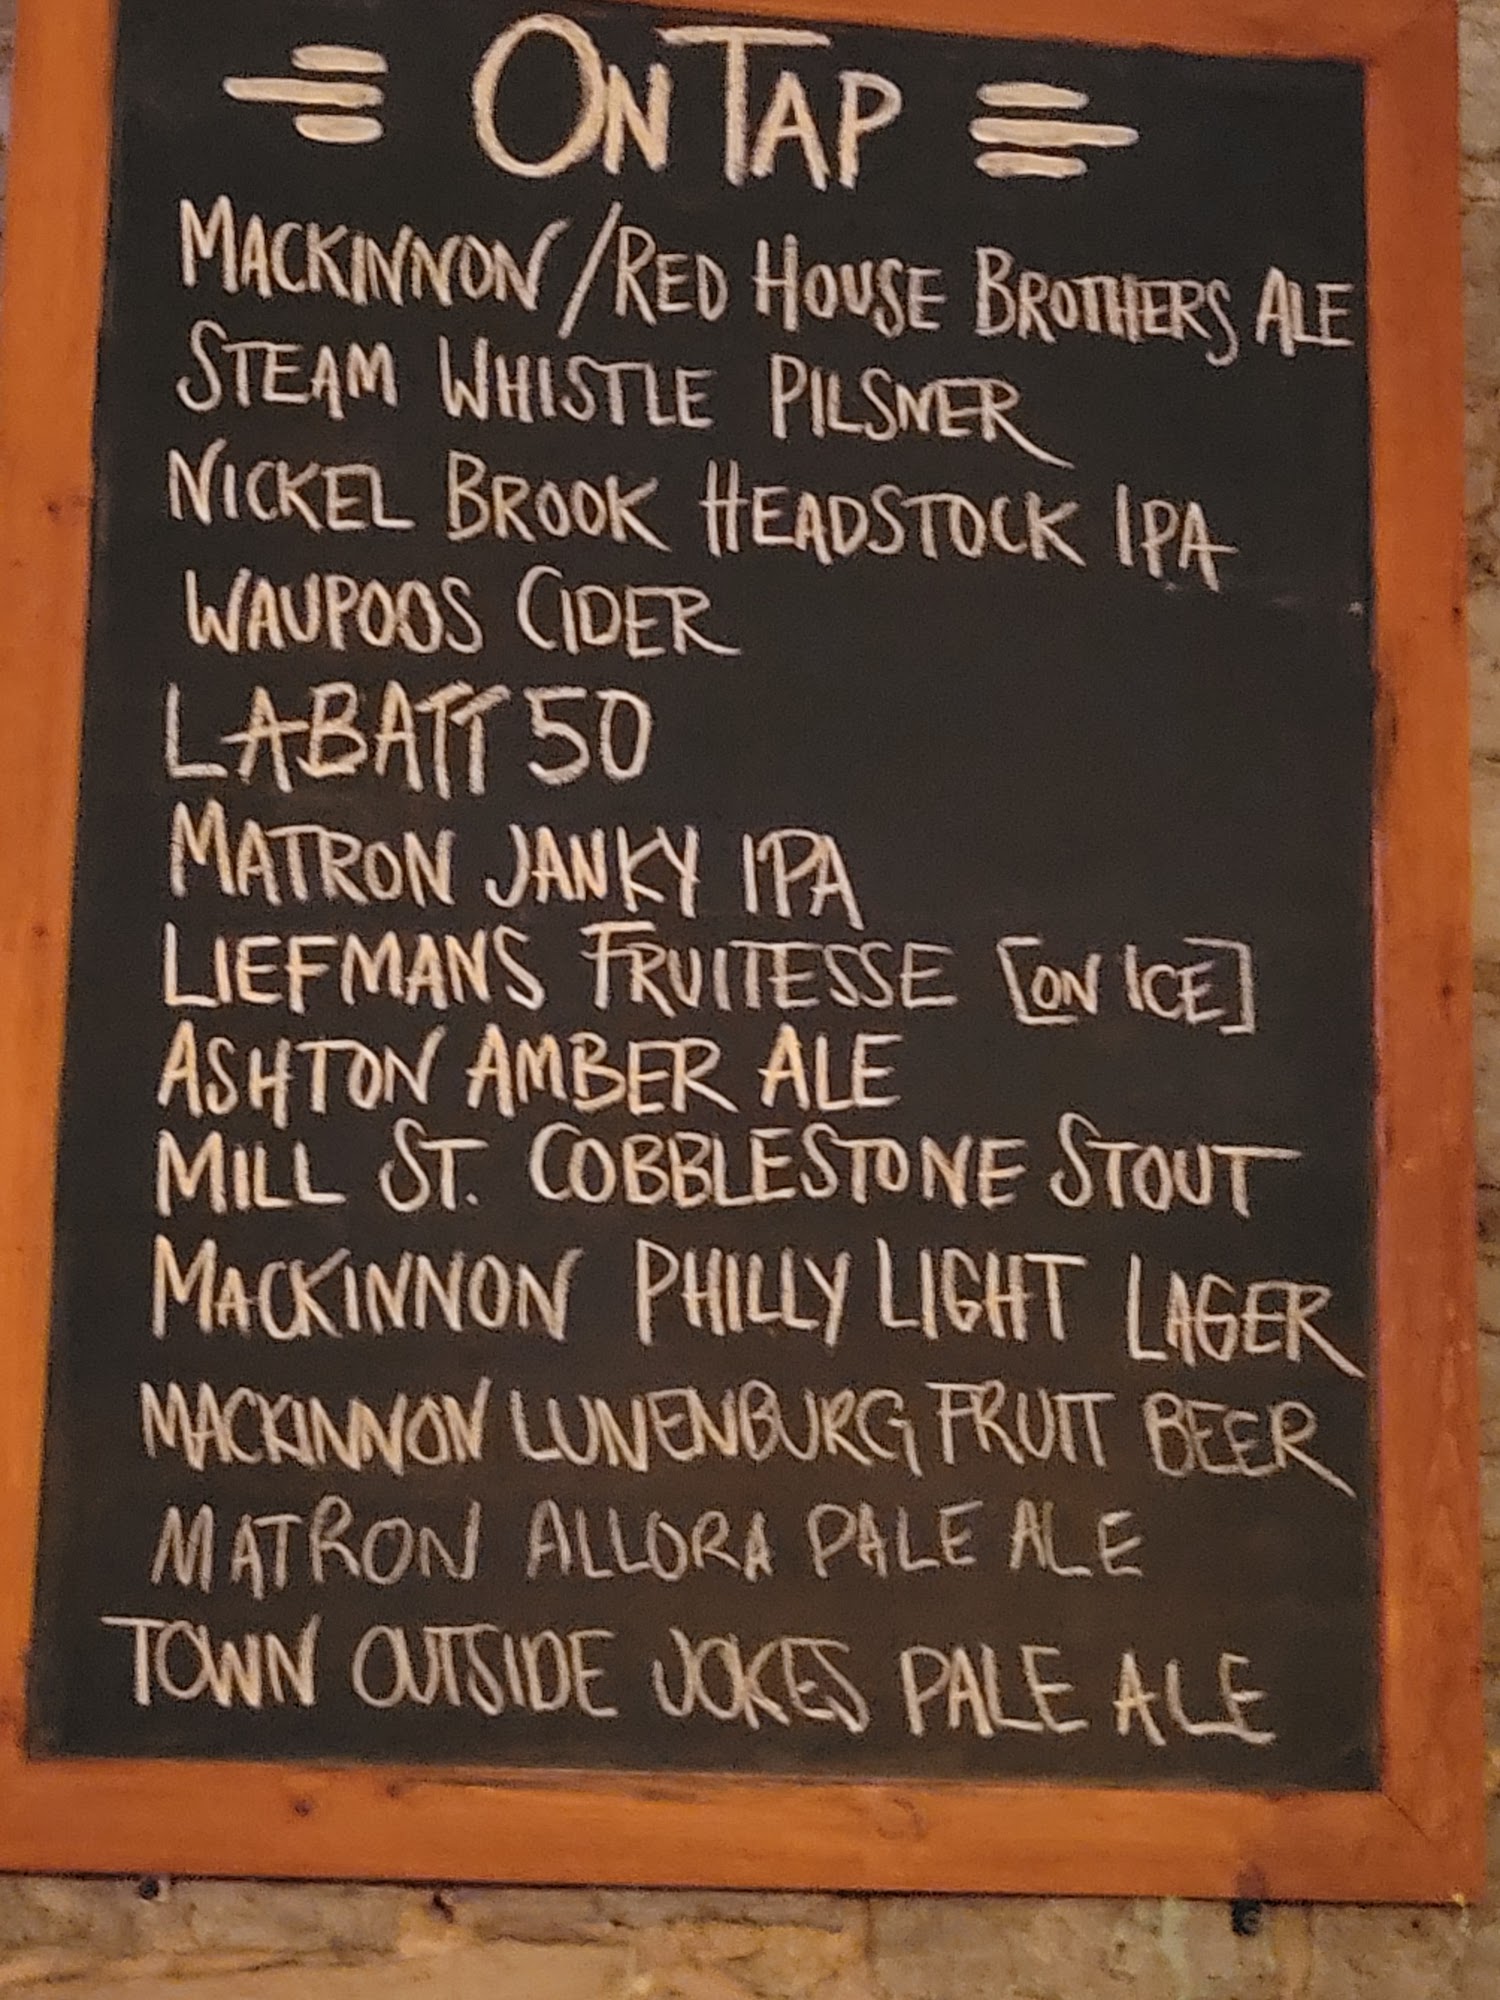 On Tap
Mackinnon/Red House Brothers Ale
Steam Whistle Pilsner
Nickel Brook Headstock IPA
Waupoos Cider
Labatt 50
Matron Janky IPA
Liefmans Fruitesse [on Ice]
Ashton Amber Ale
Mill St. Cobblestone Stout
Mackinnon Philly Light Lager
Mackinnon Lunenburg Fruit Beer
Matron Allora Pale Ale
Town Outside Jokes Pale Ale